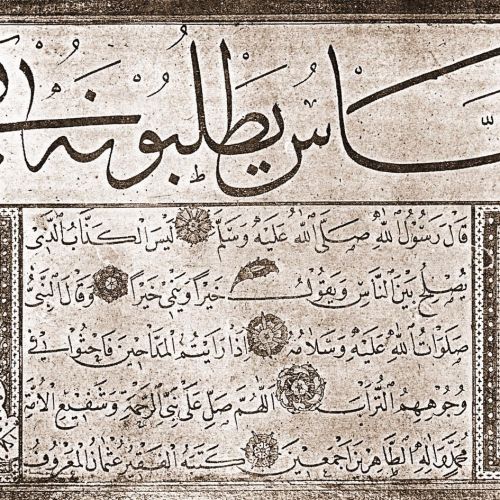 ـاس يطلبونه
قَالَ رَسُولُ اللهِ صَلَّى اللهُ عَلَيْهِ وَسَلَّمَ لَيْسَ الْكَذَّابُ الَّذِي
يُصْلِحُ بَيْنَ النَّاسِ وَيَقُولُ خَيْراً وَيَنْمِي خَيْراً وَقَالَ النَّبِيُّ
صَلَوَاتُ اللهِ عَلَيْهِ وَسَلَامُهُ اِذَا رَاَيْتُمُ الْمَدَّاحِينَ فَاحْثُوا فِي
وُجُوهِهِمُ التُّرَابَ اَللّٰهُمَّ صَلِّ عَلَى نَبِيِّ الرَّحْمَةِ وَشَفِيعِ الْاُمَّةِ
مُحَمَّدٍ وَاٰلِهِ الطَّاهِرِينَ اَجْمَعِينَ كَتَبَهُ الْفَقِيرُ عُثْمَانُ الْمَعْرُوفُ